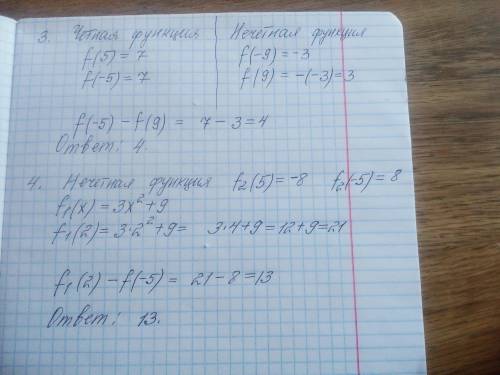 3. Чётная функция Нечётная функция
f(5) = 7 f(-9) = -3
f(-5) = 7 f(9) = -(-3) = 3
f(-5) - f(9) = 7 - 3 = 4
Ответ: 4.
4. Нечётная функция f₂(5) = -8 f₂(-5) = 8
f₁(x) = 3x² + 9
f₁(2) = 3·2² + 9 = 3·4 + 9 = 12 + 9 = 21
f₁(2) - f(-5) = 21 - 8 = 13
Ответ: 13.